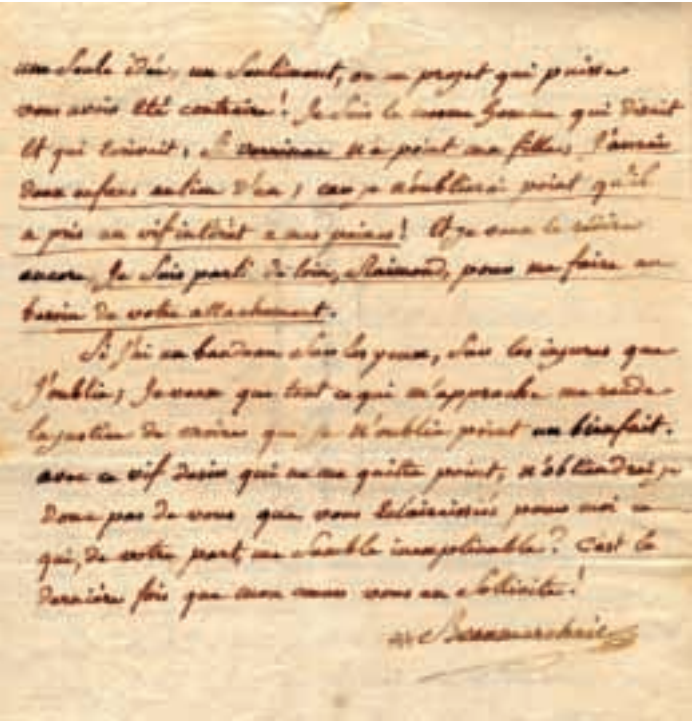 une seule idée, un sentiment, ou un projet qui puisse
vous avoir été contraire! Je suis le même homme qui disait
et qui écrivait, si n'a point ma fille, j'aurai
deux enfans au lieu d'un; car je n'oublierai point qu'il
a pris un vif intérêt a mes peines! Et je veux le
encore, Je suis parti de loin, Raimond, pour me faire un
besoin de votre attachement.
Si j'ai un bandeau sur les yeux, sur les injures que
j'oublie; Je veux que tout ce qui m'approche me rende
la justice de croire que je n'oublie point un bienfait.
avec ce vif desir qui ne me quitte point, n'obtiendrai je
donc pas de vous que vous pour moi ce
qui, de votre part, me semble inexplicable? c'est la
dernière fois que mon cœur vous en sollicite!
Beaumarchais